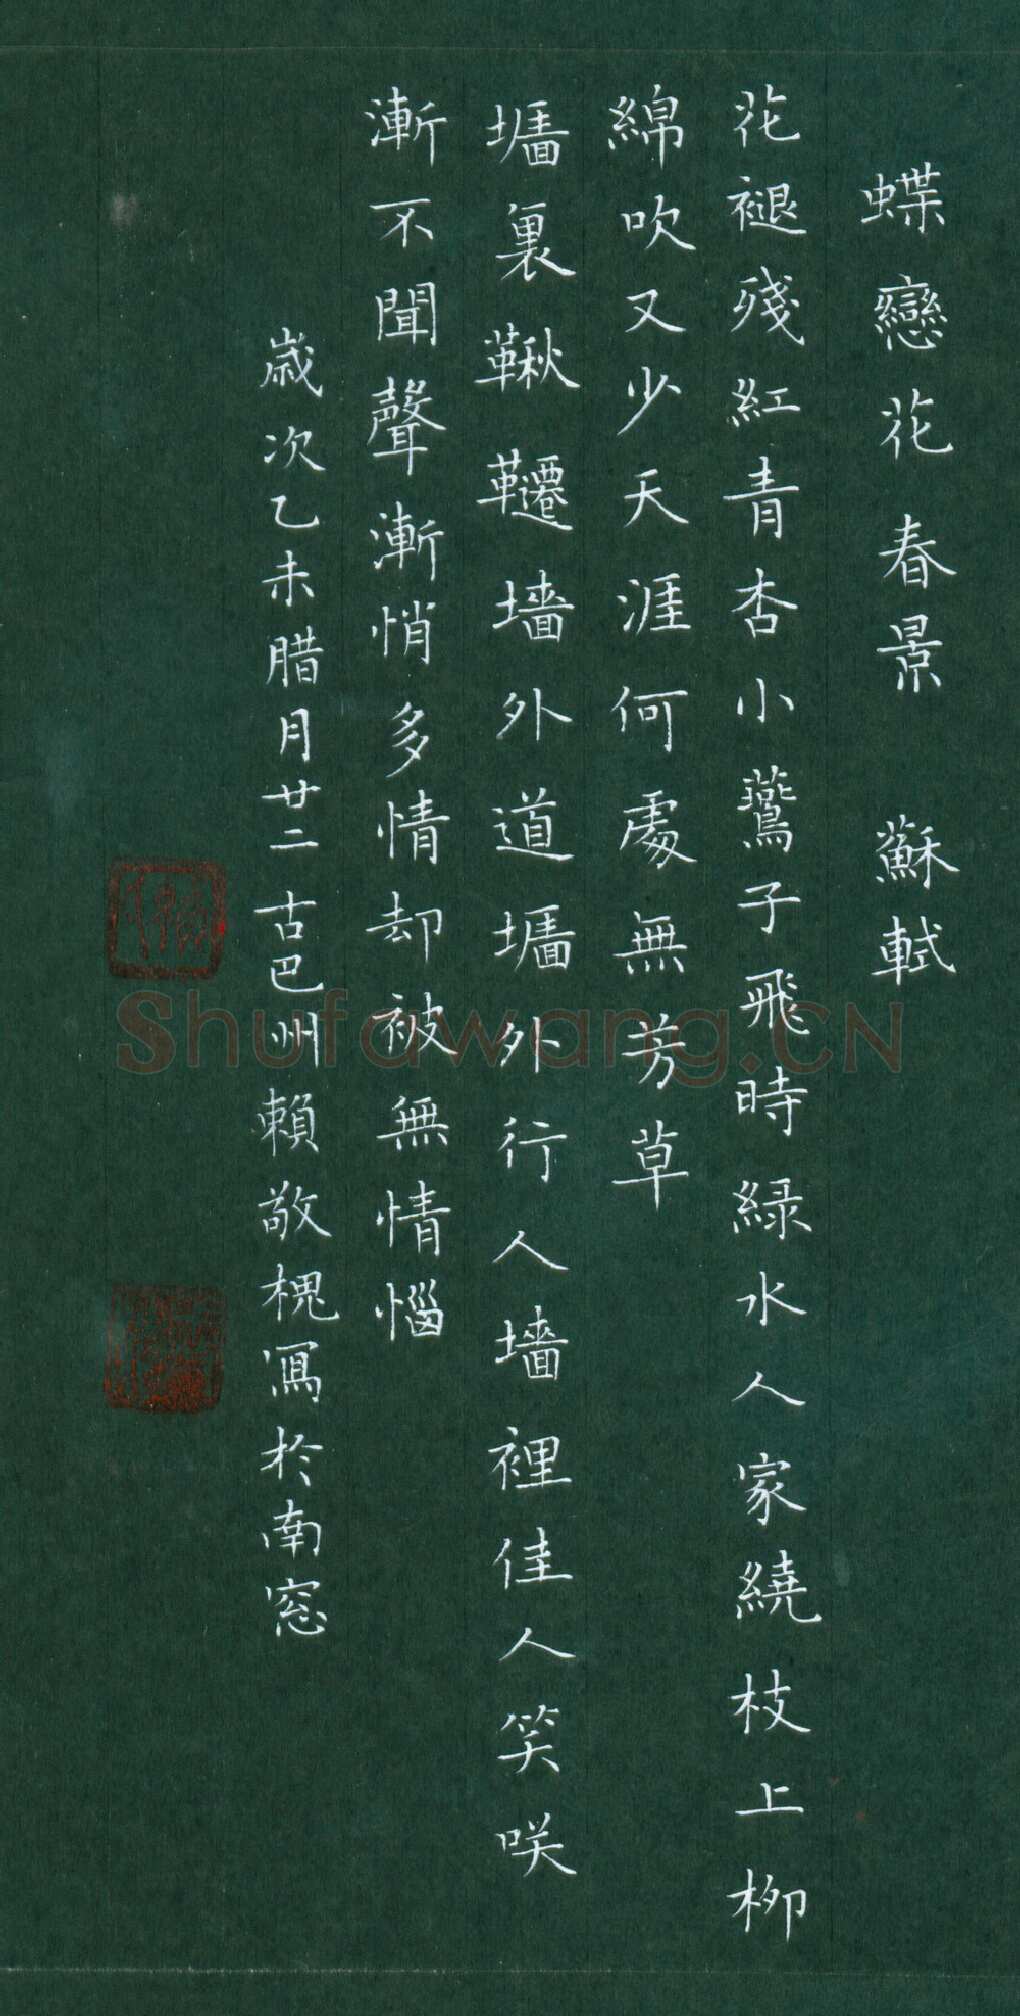 蝶戀花春景 蘇軾
花褪殘紅青杏小鷰子飛時緑水人家繞枝上柳
綿吹又少天涯何處無芳草
墻裏鞦韆墻外道墻外行人墻裡佳人笑咲
漸不聞聲漸悄多情却被無情惱
歲次乙未腊月廿二古巴州賴敬槐寫於南窓
Shufawang.CN